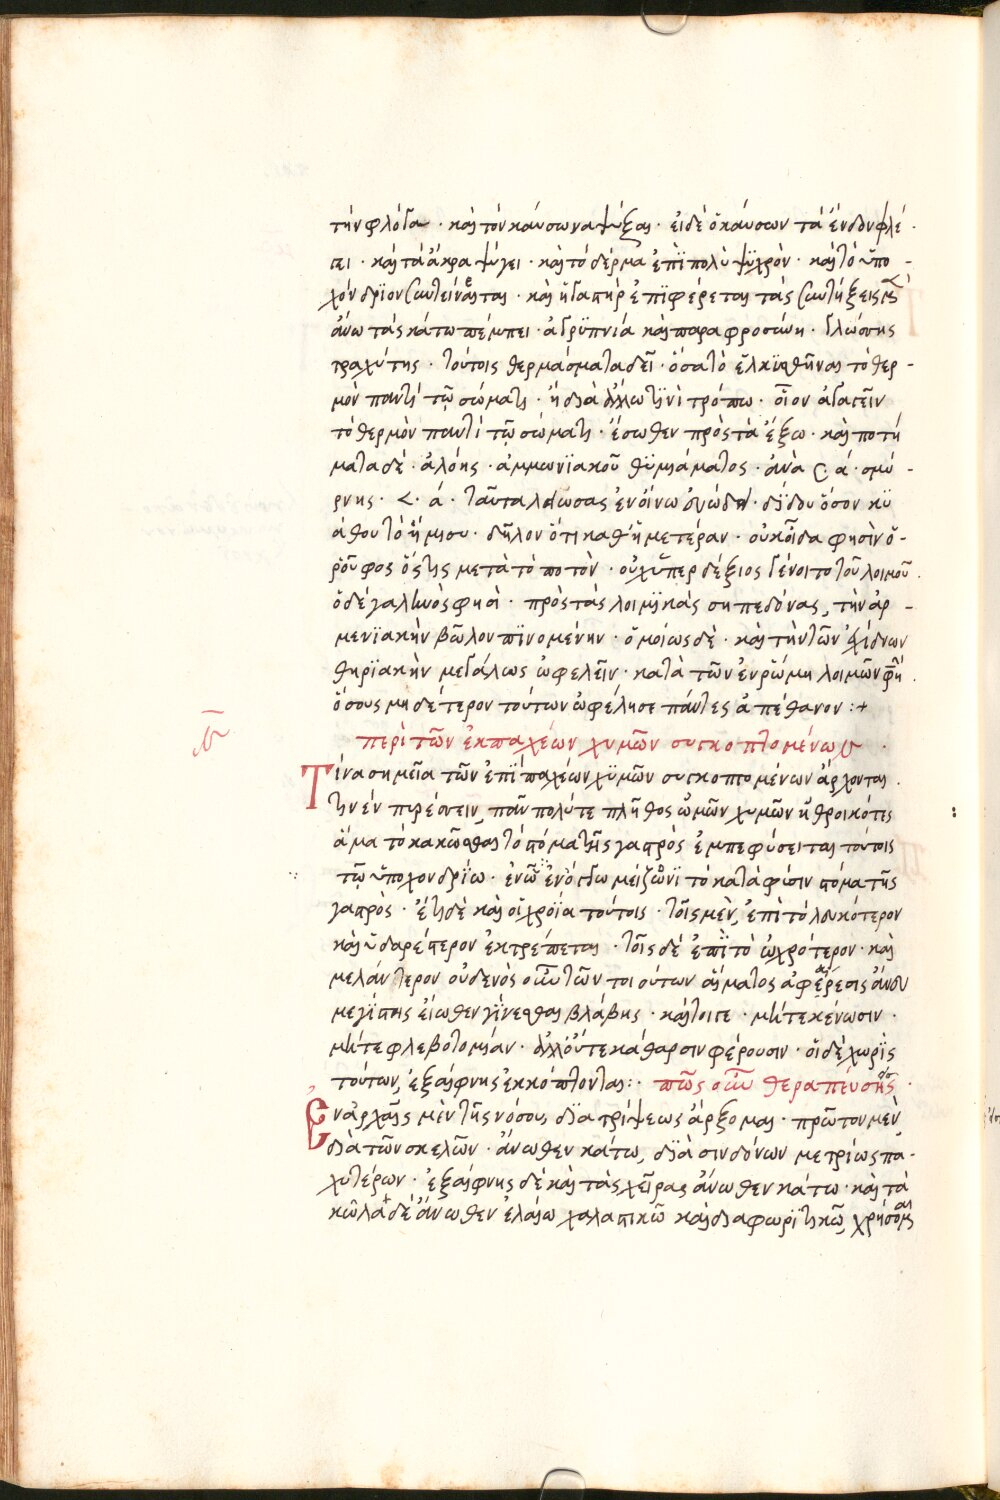 τὴν φλόγα · καὶ τὸν καύσωνα ψύξαι · εἰ δὲ ὁ καύσων τὰ ἔνδον φλέ ·
γει · καὶ τὰ ἄκρα ψύγει · καὶ τὸ δέρμα ἐπϊπολὺ ψϋχρὸν · καὶ τὸ ὑπο -
χόνδρϊον συντείνεται · καὶ ἡ γαστὴρ ἐπϊφέρεται τὰς συντήξεις
ἄνω τὰς κάτω πέμπει · ἀγρϋπνία καὶ παραφροσύνη · γλώσσης
τραχύτης · τούτοις θερμάσματα δεῖ · ὅσα τὸ ἑλκϋσθῆναι τὸ θερ -
μὸν παντὶ τῷ σώματι · ἢ διὰ ἄλλω τϊνὶ τρόπω · οἷον ἀγαγεῖν
τὸ θερμὸν παντὶ τῷ σώματι · ἔσωθεν πρὸς τὰ ἔξω · καὶ ποτή
ματα δέ · ἀλόης · ἀμμωνϊακοῦ θϋμϊάματος · ἀνὰ ά · σμύ -
ρνης · ά · ταῦτα λϊώσας ἐν οἴνω εὐώδει · δίδου ὅσον κϋ
άθου τὸ ἥμισυ · δῆλον ὅτι καθ' ἡμετέραν · οὐκ οἶδα φησὶν ὁ -
ῥοῦφος ὅστις μετὰ τὸ ποτὸν · οὐχ ὑπερδέξιος γένοιτο τοῦ λοιμοῦ .
ὁ δέ γαλινὸς φησὶ · πρὸς τὰς λοιμϊκὰς σηπεδόνας, τὴν ἀρ -
μενϊακὴν βῶλον πϊνομένην · ὁμοίως δὲ · καὶ τὴν τῶν ἐχίδνων
θηρϊακὴν μεγάλως ὠφελεῖν · κατὰ τῶν ἐν ῥώμη λοιμῶν φησὶ .
ὅσους μηδέτερον τούτων ὠφέλησε πάντες ἀπέθανον :+
περὶ τῶν ἐκ παχέων χυμῶν συγκοπτομένων ·
Τίνα σημεῖα τῶν ἐπϊ παχέων χϋμῶν συγκοπτομένων ἄρχονται .
τὴν ἐν πυρέσσειν, πᾶν πολύ τε πλῆθος ὠμῶν χυμῶν ἠθροικότες
ἅμα τὸ κακῶσθαι τὸ στόμα τῆς γαστρὸς ἐμπεφύσειται τούτοις
τῷ ὑποχονδρϊω · ἐν ᾧ ἐνόγκω μείζωνϊ τὸ κατὰ φύσιν στόμα τῆς
γαστρὸς · ἔτι δὲ καὶ οἱ χρόϊα τούτοις · τοῖς μὲν, ἐπὶ τὸ λευκότερον
καὶ ὑδαρέστερον ἐκτρέπεται · τοῖς δέ ἐπϊ τὸ ὠχρότερον · καὶ
μελάντερον οὐδενὸς οὖν τῶν τοιούτων αἵματος ἀφαίρεσις ἄνευ
μεγίστης εἴωθεν γίνεσθαι βλάβης · καίτοιγε · μήτε κένωσιν ·
μήτε φλεβοτομίαν · ἀλλ' οὔτε κάθαρσιν φέρουσιν · οἱ δὲ χωρὶς
τούτων, ἐξαίφνης ἐκκόπτονται : · πῶς οὖν θεραπεύσης ·
Ἐν ἀρχαῖς μὲν τῆς νόσου, διατρίψεως ἄρξομαι · πρῶτον μὲν
διὰ τῶν σκελῶν · ἄνωθεν κάτω, διὰ σινδόνων μετρίως πα ·
χυτέρων · ἐξαίφνης δὲ καὶ τὰς χεῖρας ἄνωθεν κάτω · καὶ τὰ
κῶλα δὲ ἄνωθεν ἐλαίω χαλαστικῶ καὶ διαφωρϊτικῶ, χρήσομαι